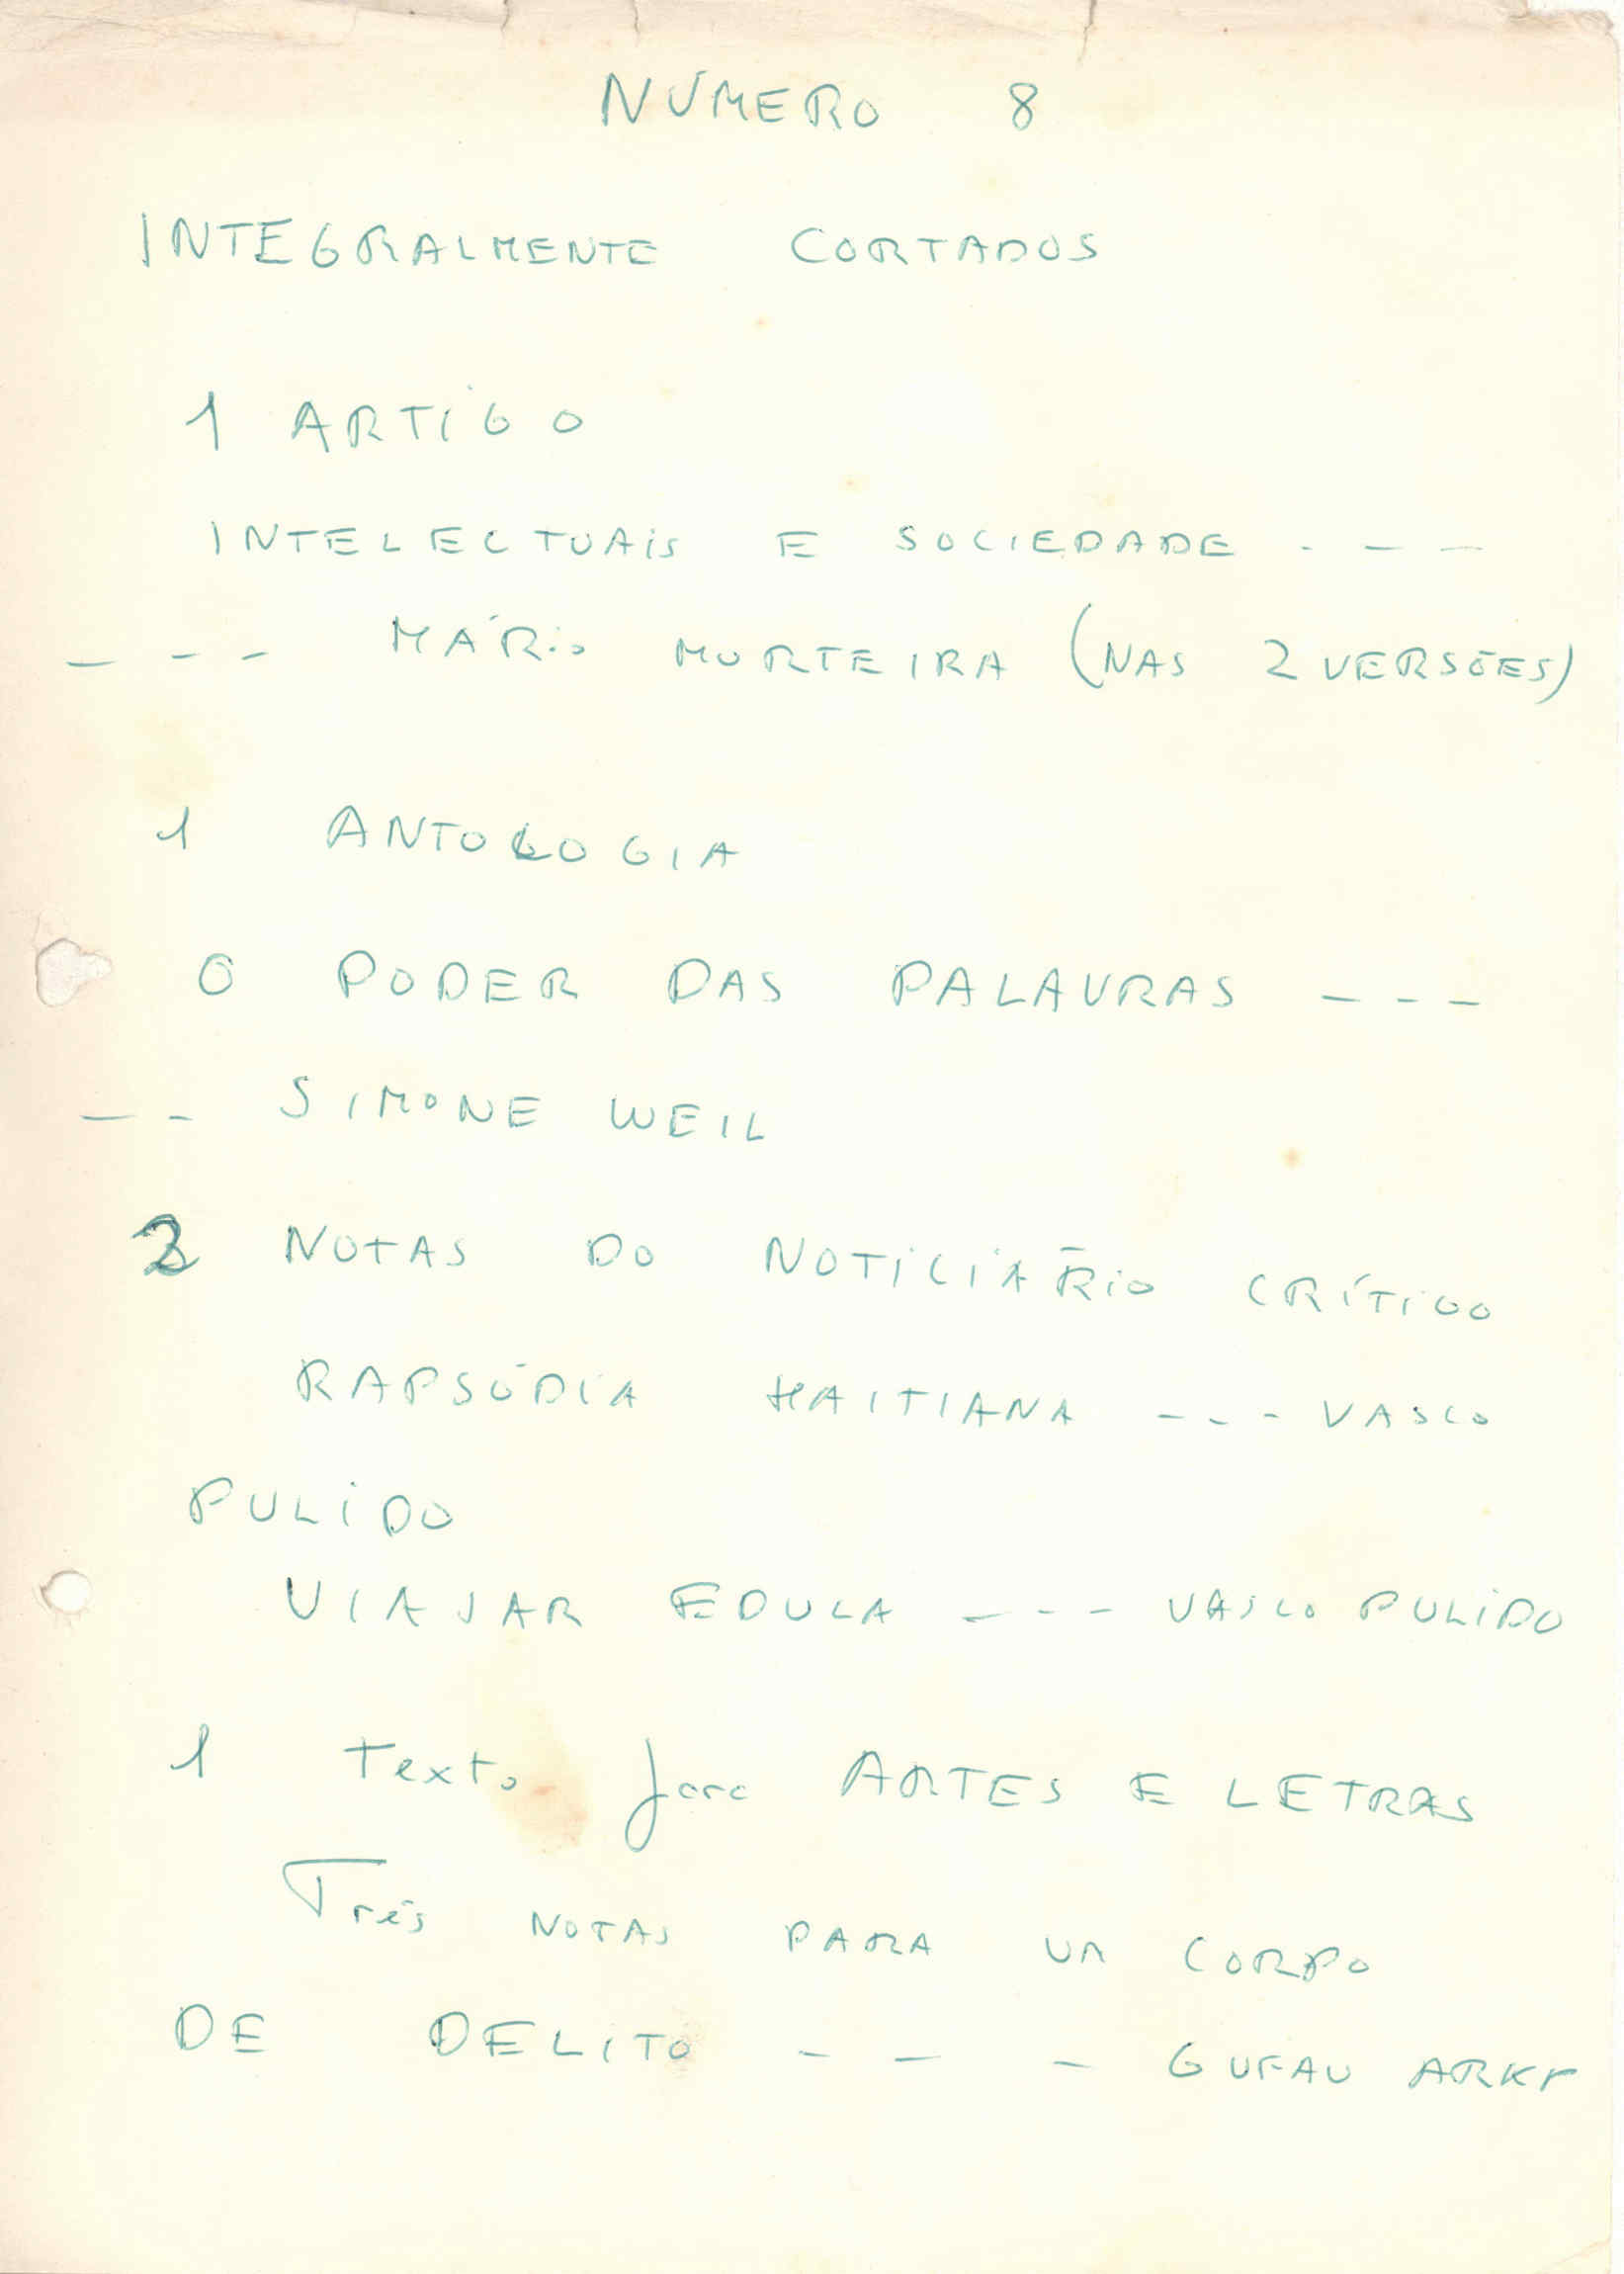 NÚMERO 8
INTEGRALMENTE CORTADOS
1 ARTIGO
INTELECTUAIS E SOCIEDADE - - -
- - - MÁRIO MURTEIRA (NAS 2 VERSÕES)
1 ANTOLOGIA
O PODER DAS PALAVRAS - - -
- - SIMONE WEIL
2 NOTAS DO NOTICIÁRIO CRÍTICO
RAPSÓDIA HAITIANA - - - VASCO
PULIDO
VIAJAR EDUCA - - - VASCO PULIDO
1 Texto para ARTES E LETRAS
Três NOTAS PARA UM CORPO
DE DELITO - - -